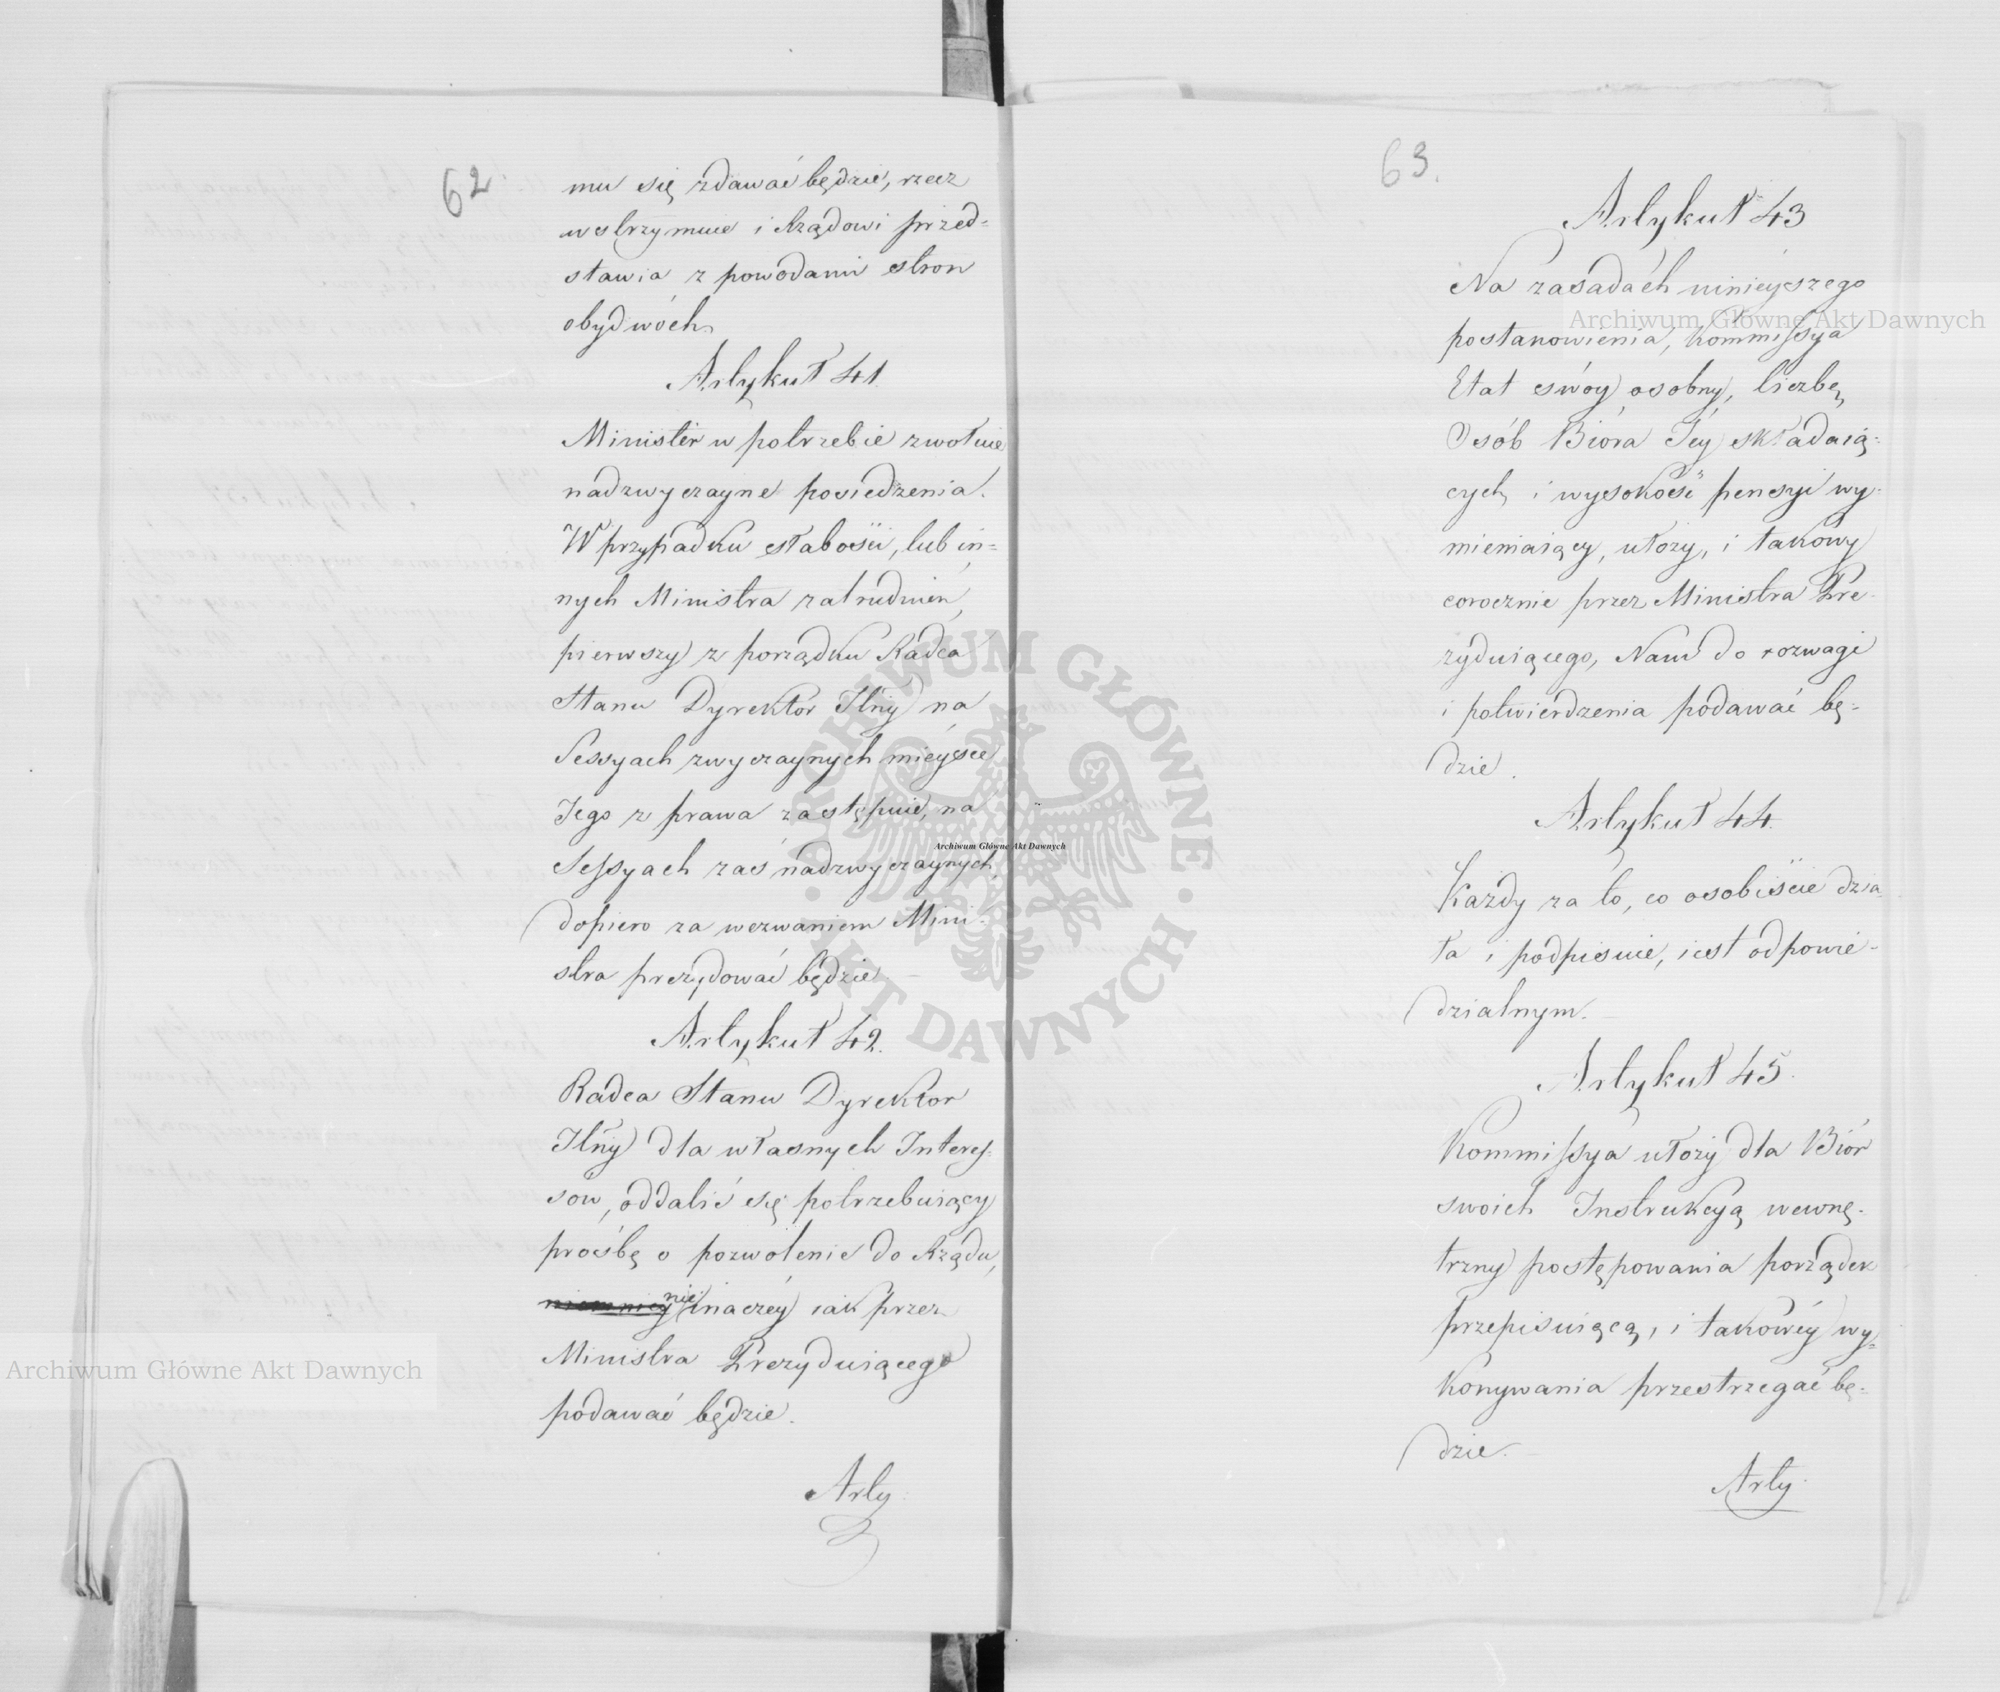 62.
mu się zdawać będzie, rzecz
wstrzymuie i Rządowi przed=
stawia z powodami stron
obydwóch.
Artykuł 41.
Minister w potrzebie zwołuie
nadzwyczayne posiedzenia.
W przypadku słabości, lub in=
nych Ministra zatrudnień,
pierwszy z porządku Radca
Stanu Dyrektor Jlny na
Sessyach zwyczaynych mieysce
Jego z prawa zastępuie, na
Sessyach zaś nadzwyczaynych,
dopiero za wezwaniem Mini-
stra prezydować będzie.
Artykuł 42.
Radca Stanu Dyrektor
Jlny dla własnych Interes-
sów, oddalić się potrzebuiący
prośbę o pozwolenie do Rządu,
nie inaczéy iak przez
Ministra Prezyduiącego
podawać będzie.
Arty
63.
Artykuł 43
Na zasadach ninieyszego
postanowienia, Kommissya
Etat swóy osobny, liczbę
Osób Bióra Jéy składaią=
cych, i wysokość pensyi wy-
mieniaiący, ułoży, i takowy
corocznie przez Ministra Pre-
zyduiącego, Nam do rozwagi
i potwierdzenia podawać bę=
dzie.
Artykuł 44.
Każdy za to, co osobiście dzia-
ła i podpisuie, iest odpowie-
dzialnym.
Artykuł 45.
Kommissya ułoży dla Biór
swoich Instrukcyą wewnę-
trzny postępowania porządek
przepisuiącą, i takowéy wy=
konywania przestrzegać bę-
dzie.
Arty
Archiwum Główne Akt Dawnych
Archiwum Główne Akt Dawnych
Archiwum Główne Akt Dawnych
ARCHIWUM GŁÓWNE · AKT DAWNYCH ·